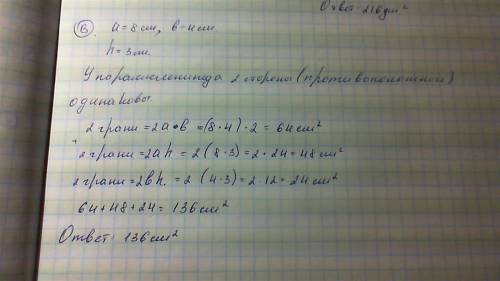 Ответ: 216 дм²
В) a = 8 см, b = 4 см.
h = 3 см.
У параллелепипеда 2 стороны (противоположной)
одинаковы.
2 грани = 2a•b = (8 · 4) · 2 = 64 см²
2 грани = 2ah = 2 (8 · 3) = 2 · 24 = 48 см²
2 грани = 2bh. = 2 (4 · 3) = 2 · 12 = 24 см²
64 + 48 + 24 = 136 см²
Ответ: 136 см²